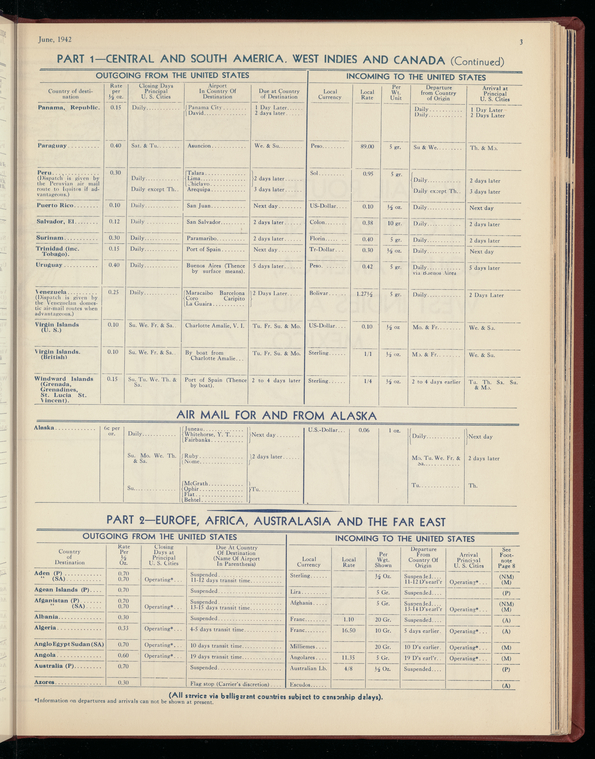 June, 1942
3
PART 1—CENTRAL AND SOUTH AMERICA. WEST INDIES AND CANADA (Continued)
OUTGOING FROM THE UNITED STATES INCOMING TO THE UNITED STATES
Country of desti-nation Rate per ½ oz. Closing Days Principal U. S. Cities Airport In Country Of Destination Due at Country of Destination Local Currency Local Rate Per Wt. Unit Departure from Country of Origin Arrival at Principal U. S. Cities
Panama, Republic. 0.15 Daily Panama City 1 Day Later Daily 1 Day Later
David 2 days later Daily 2 Days Later
Paraguay 0.40 Sat. & Tu. Asuncion We. & Su. Peso 89.00 5 gr. Su & We. Th. & Mo.
Peru 0.30 Talara Sol 0.95 5 gr.
(Dispatch is given by Daily Lima 2 days later Daily 2 days later
the Peruvian air mail Chiclavo
route to Iquitos if ad- Daily except Th. Arequipa 3 days later Daily except Th. 3 days later
vantageous.)
Puerto Rico 0.10 Daily San Juan Next day US-Dollar 0.10 ½ oz. Daily Next day
Salvador, El 0.12 Daily San Salvador 2 days later Colon 0.58 10 gr. Daily 2 days later
Surinam 0.30 Daily Paramaribo 2 days later Florin 0.40 5 gr. Daily 2 days later
Trinidad (inc. Tobago). 0.15 Daily Port of Spain Next day Tr-Dollar 0.30 ½ oz. Daily Next day
Uruguay 0.40 Daily Buenos Aires (Thence by surface means). 5 days later Peso 0.42 5 gr. Daily via Buenos Aires 5 days later
Venezuela 0.25 Daily Maracaibo Barcelona 2 Days Later Bolivar 1.27½ 5 gr. Daily 2 Days Later
(Dispatch is given by Coro Caripito
the Venezuelan domes- La Guaira
tic air-mail routes when
advantageous.)
Virgin Islands (U. S.) 0.10 Su. We. Fr. & Sa. Charlotte Amalie, V. I. Tu. Fr. Su. & Mo. US-Dollar 0.10 ½ oz Mo. & Fr. We. & Sa.
Virgin Islands. (British) 0.10 Su. We. Fr. & Sa. By boat from Charlotte Amalie Tu. Fr. Su. & Mo. Sterling 1/1 ½ oz Mo. & Fr. We. & Sa.
Windward Islands (Grenada, Grenadines, St. Lucia St. Vincent). 0.15 Su. Tu. We. Th. & Sa. Port of Spain (Thence by boat). 2 to 4 days later Sterling 1/4 ½ oz. 2 to 4 days earlier Tu. Th. Sa. Su. & Mo.
AIR MAIL FOR AND FROM ALASKA
Alaska 6c per oz. Daily Juneau Next day U.S.-Dollar 0.06 1 oz. Daily Next day
Whitehorse, Y. T.
Fairbanks
Su. Mo. We. Th. & Sa. Ruby 2 days later Mo. Tu. We. Fr. & 2 days later
Nome
Su. McGrath Tu. Tu. Th.
Ophir
Flat
Bethel
PART 2—EUROPE, AFRICA, AUSTRALASIA AND THE FAR EAST
OUTGOING FROM THE UNITED STATES INCOMING TO THE UNITED STATES
Country of Destination Rate Per ½ Oz. Closing Days at Principal U. S. Cities Due At Country Of Destination (Name Of Airport In Parenthesis) Local Currency Local Rate Per Wgt. Shown Departure From Country Of Origin Arrival Principal U. S. Cities See Foot-note Page 8
Aden (P) 0.70 Suspended Sterling ½ Oz. Suspended (NM)
" (SA) 0.70 Operating* 11-12 days transit time 11-12 D's earl'r Operating* (M)
Agean Islands (P) Lira 5 Gr. Suspended (P)
Afganistan (P) 0.70 Suspended Afghania 5 Gr. Suspended (NM)
" (SA) 0.70 Operating* 13-15 days transit time 13-14 D's earl'r Operating* (M)
Albania 0.30 Suspended Franc 1.10 20 Gr. Suspended (A)
Algeria 0.33 Operating* 4-5 days transit time Franc 16.50 10 Gr. 5 days earlier Operating* (A)
Anglo Egypt Sudan (SA) 0.70 Operating* 10 days transit time Milliemes 20 Gr. 10 D's earlier Operating* (M)
Angola 0.60 Operating* 19 days transit time Angolares 11.35 5 Gr. 19 D's earl'r Operating* (M)
Australia (P) 0.70 Suspended Australian Lb. 4/8 ½ Oz. Suspended (P)
Azores 0.30 Flag stop (Carrier's discretion) Escudos (A)
(All service via belligerant countries subject to censorship delays).
*Information on departures and arrivals can not be shown at present.